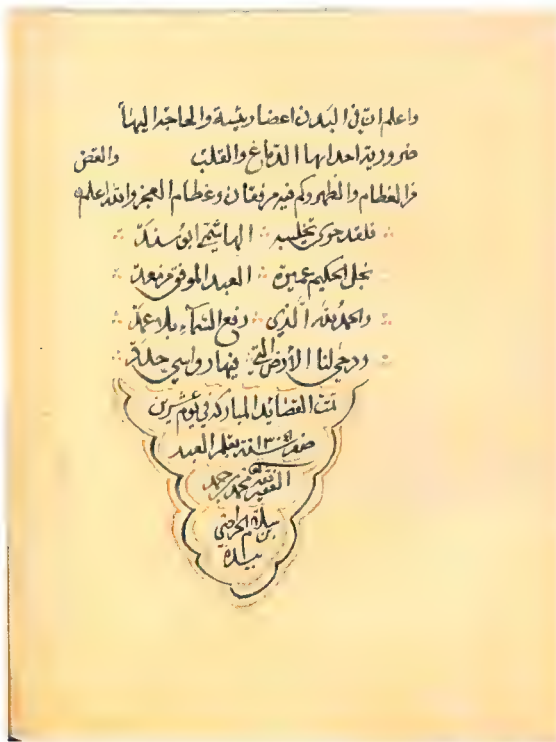 واعلم ان في البدن اعضا رئيسة والحاجة اليها
ضرورية احداها الدماغ والقلب والغض
فوا لعظام والظهر وكم فيه من فقان وعظام العجز والله اعلم
فلقد حوى تخليسه الهاشمي ابو سندك
نجل الحكيم عميرة العبد الموفق من معد
والحمد لله الذي رفع السماء بلا عمد
ودحى لنا الأرض التي فيها رواسي
تمت القصائد المباركة في يوم عشرين
صفر سنة ١٣٠٤ بقلم العبد
الفقير لله محمد بن حمد
بن سلام
بيده